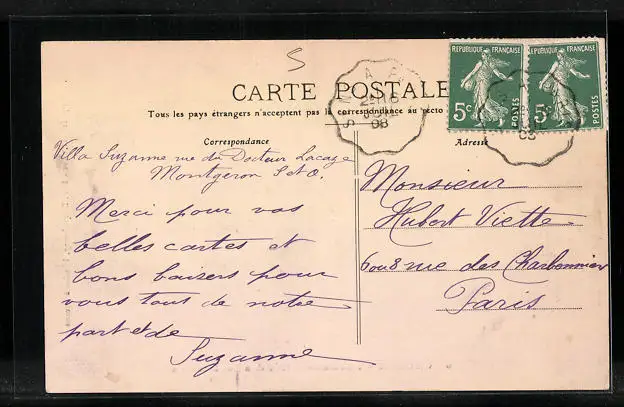 5
CARTE POSTALE
Tous les pays étrangers n'acceptent pas la correspondance au recto
Correspondance
Villa Suzanne rue du Docteur Lacaze
Montgeron S et O.
Merci pour vos
belles cartes et
bons baisers pour
vous tout de notre
part et de
Suzanne
REPUBLIQUE FRANÇAISE
5c
POSTES
REPUBLIQUE FRANÇAISE
5c
POSTES
08
Adresse
Monsieur
Hubert Viette
6 ou 8 rue des Charbonnier
Paris